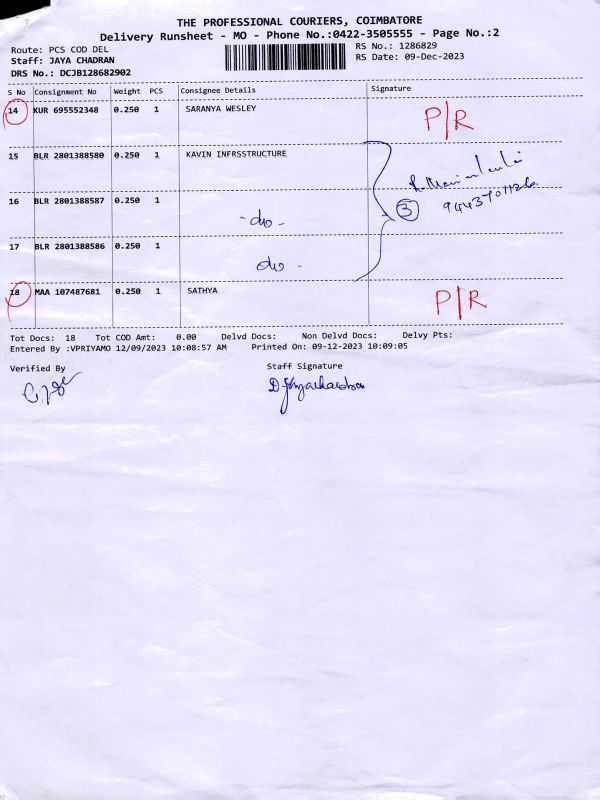 THE PROFESSIONAL COURIERS, COIMBATORE
Delivery Runsheet - MO - Phone No.:0422-3505555 - Page No.:2
Route: PCS COD DEL
RS No.: 1286829
Staff: JAYA CHADRAN
RS Date: 09-Dec-2023
DRS No.: DCJB128682902
S No Consignment No Weight PCS Consignee Details Signature
14 KUR 695552348 0.250 1 SARANYA WESLEY P|R
15 BLR 2801388580 0.250 1 KAVIN INFRSSTRUCTURE
16 BLR 2801388587 0.250 1 -do- 3
17 BLR 2801388586 0.250 1 do -
18 MAA 107487681 0.250 1 SATHYA P|R
Tot Docs: 18 Tot COD Amt: 0.00 Delvd Docs: Non Delvd Docs: Delvy Pts:
Entered By :VPRIYAMO 12/09/2023 10:08:57 AM Printed On: 09-12-2023 10:09:05
Verified By Staff Signature